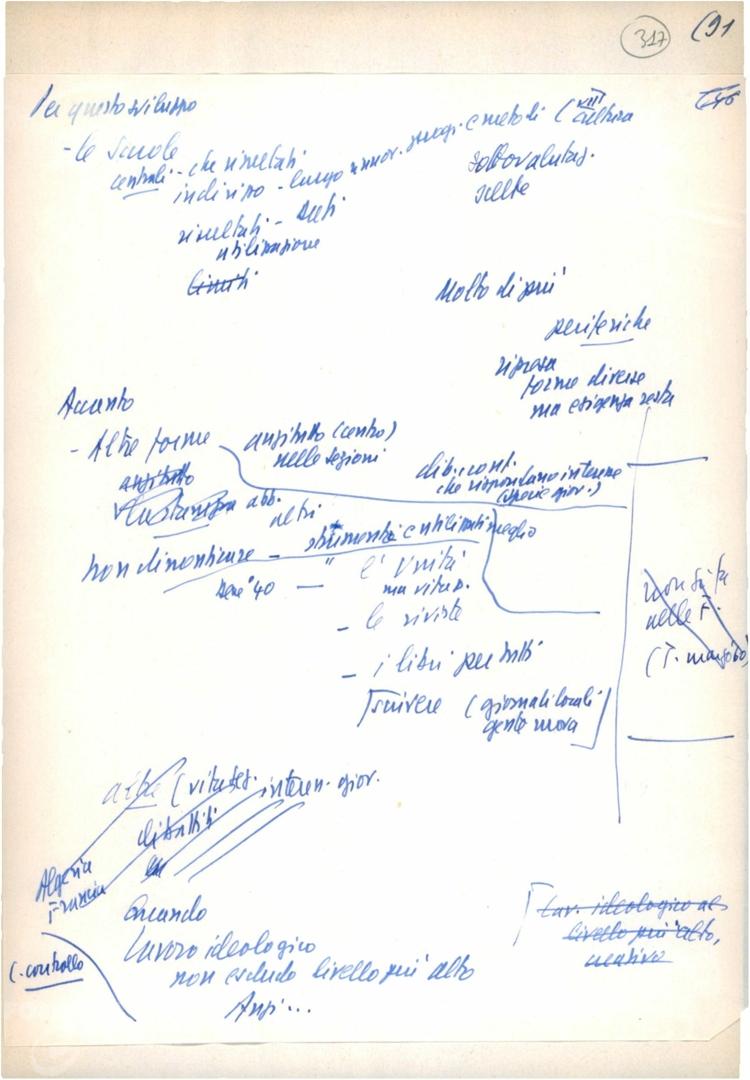 317 (91
Per questo sviluppo
- le scuole
centrali - che risultati
indirizzo - luogo nuov. e metodi (VIII
cultura
sottovalutaz.
scelte
risultati - tutti
utilizzazione
Limiti
Molto di più
periferiche
ripresa
forme diverse
ma esigenza resta
Accanto
- Altre forme
anzitutto (centro)
nelle sezioni
anzitutto
dib. cont.
che rispondano interesse
(specie giov.)
abb. altri
Non dimenticare - strumenti e utilizzati meglio
bene '40 - " l'Unità
ma vitup.
- le riviste
- i libri per tutti
scrivere (giornali locali
gente nuova
non si fa
nelle F.
altre (vita sez. interess. giov.
dibattiti
Algeria
Francia
Quando
Lavoro ideologico
non escludo livello più alto
Anzi...
C. controllo
Lav. ideologico al
livello più alto,
creativo